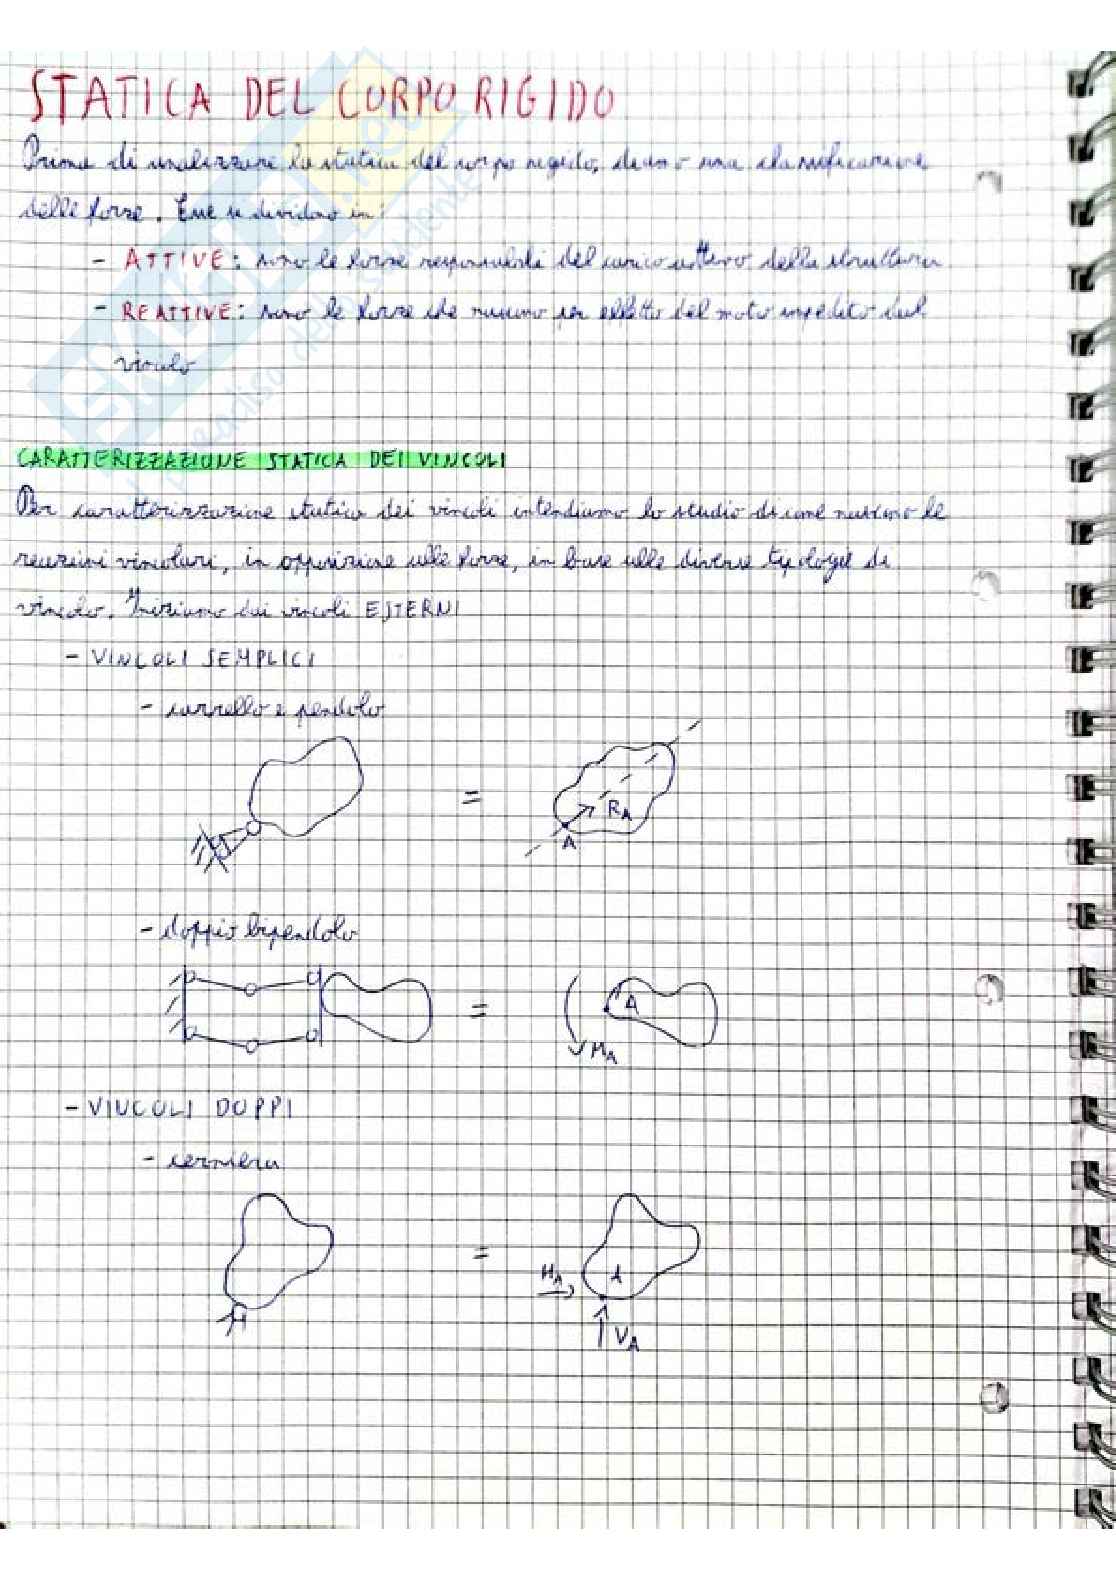 STATICA DEL CORPO RIGIDO
Prima di analizzare la statica del corpo rigido, diamo una classificazione
delle forze. Esse si dividono in:
- ATTIVE: sono le forze responsabili del carico attivo della struttura
- REATTIVE: sono le forze che nascono per effetto del moto impedito dal
vincolo
CARATTERIZZAZIONE STATICA DEI VINCOLI
Per caratterizzazione statica dei vincoli intendiamo lo studio di come nascono le
reazioni vincolari, in opposizione alle forze, in base alle diverse tipologie di
vincolo. Iniziamo dai vincoli ESTERNI
- VINCOLI SEMPLICI
- carrello e pendolo
= RA
A
- doppio bipendolo
= A
MA
- VINCOLI DOPPI
- cerniera
= HA A
VA